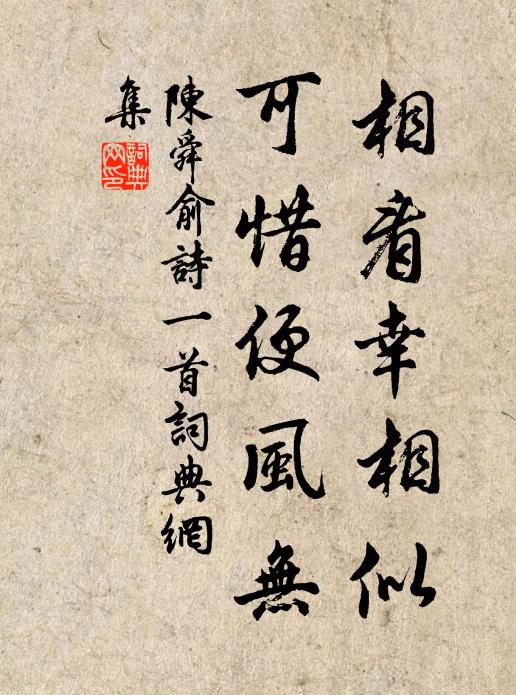 相看幸相似
可惜便風無
陳舜俞詩一首詞典網
集
詞典網印